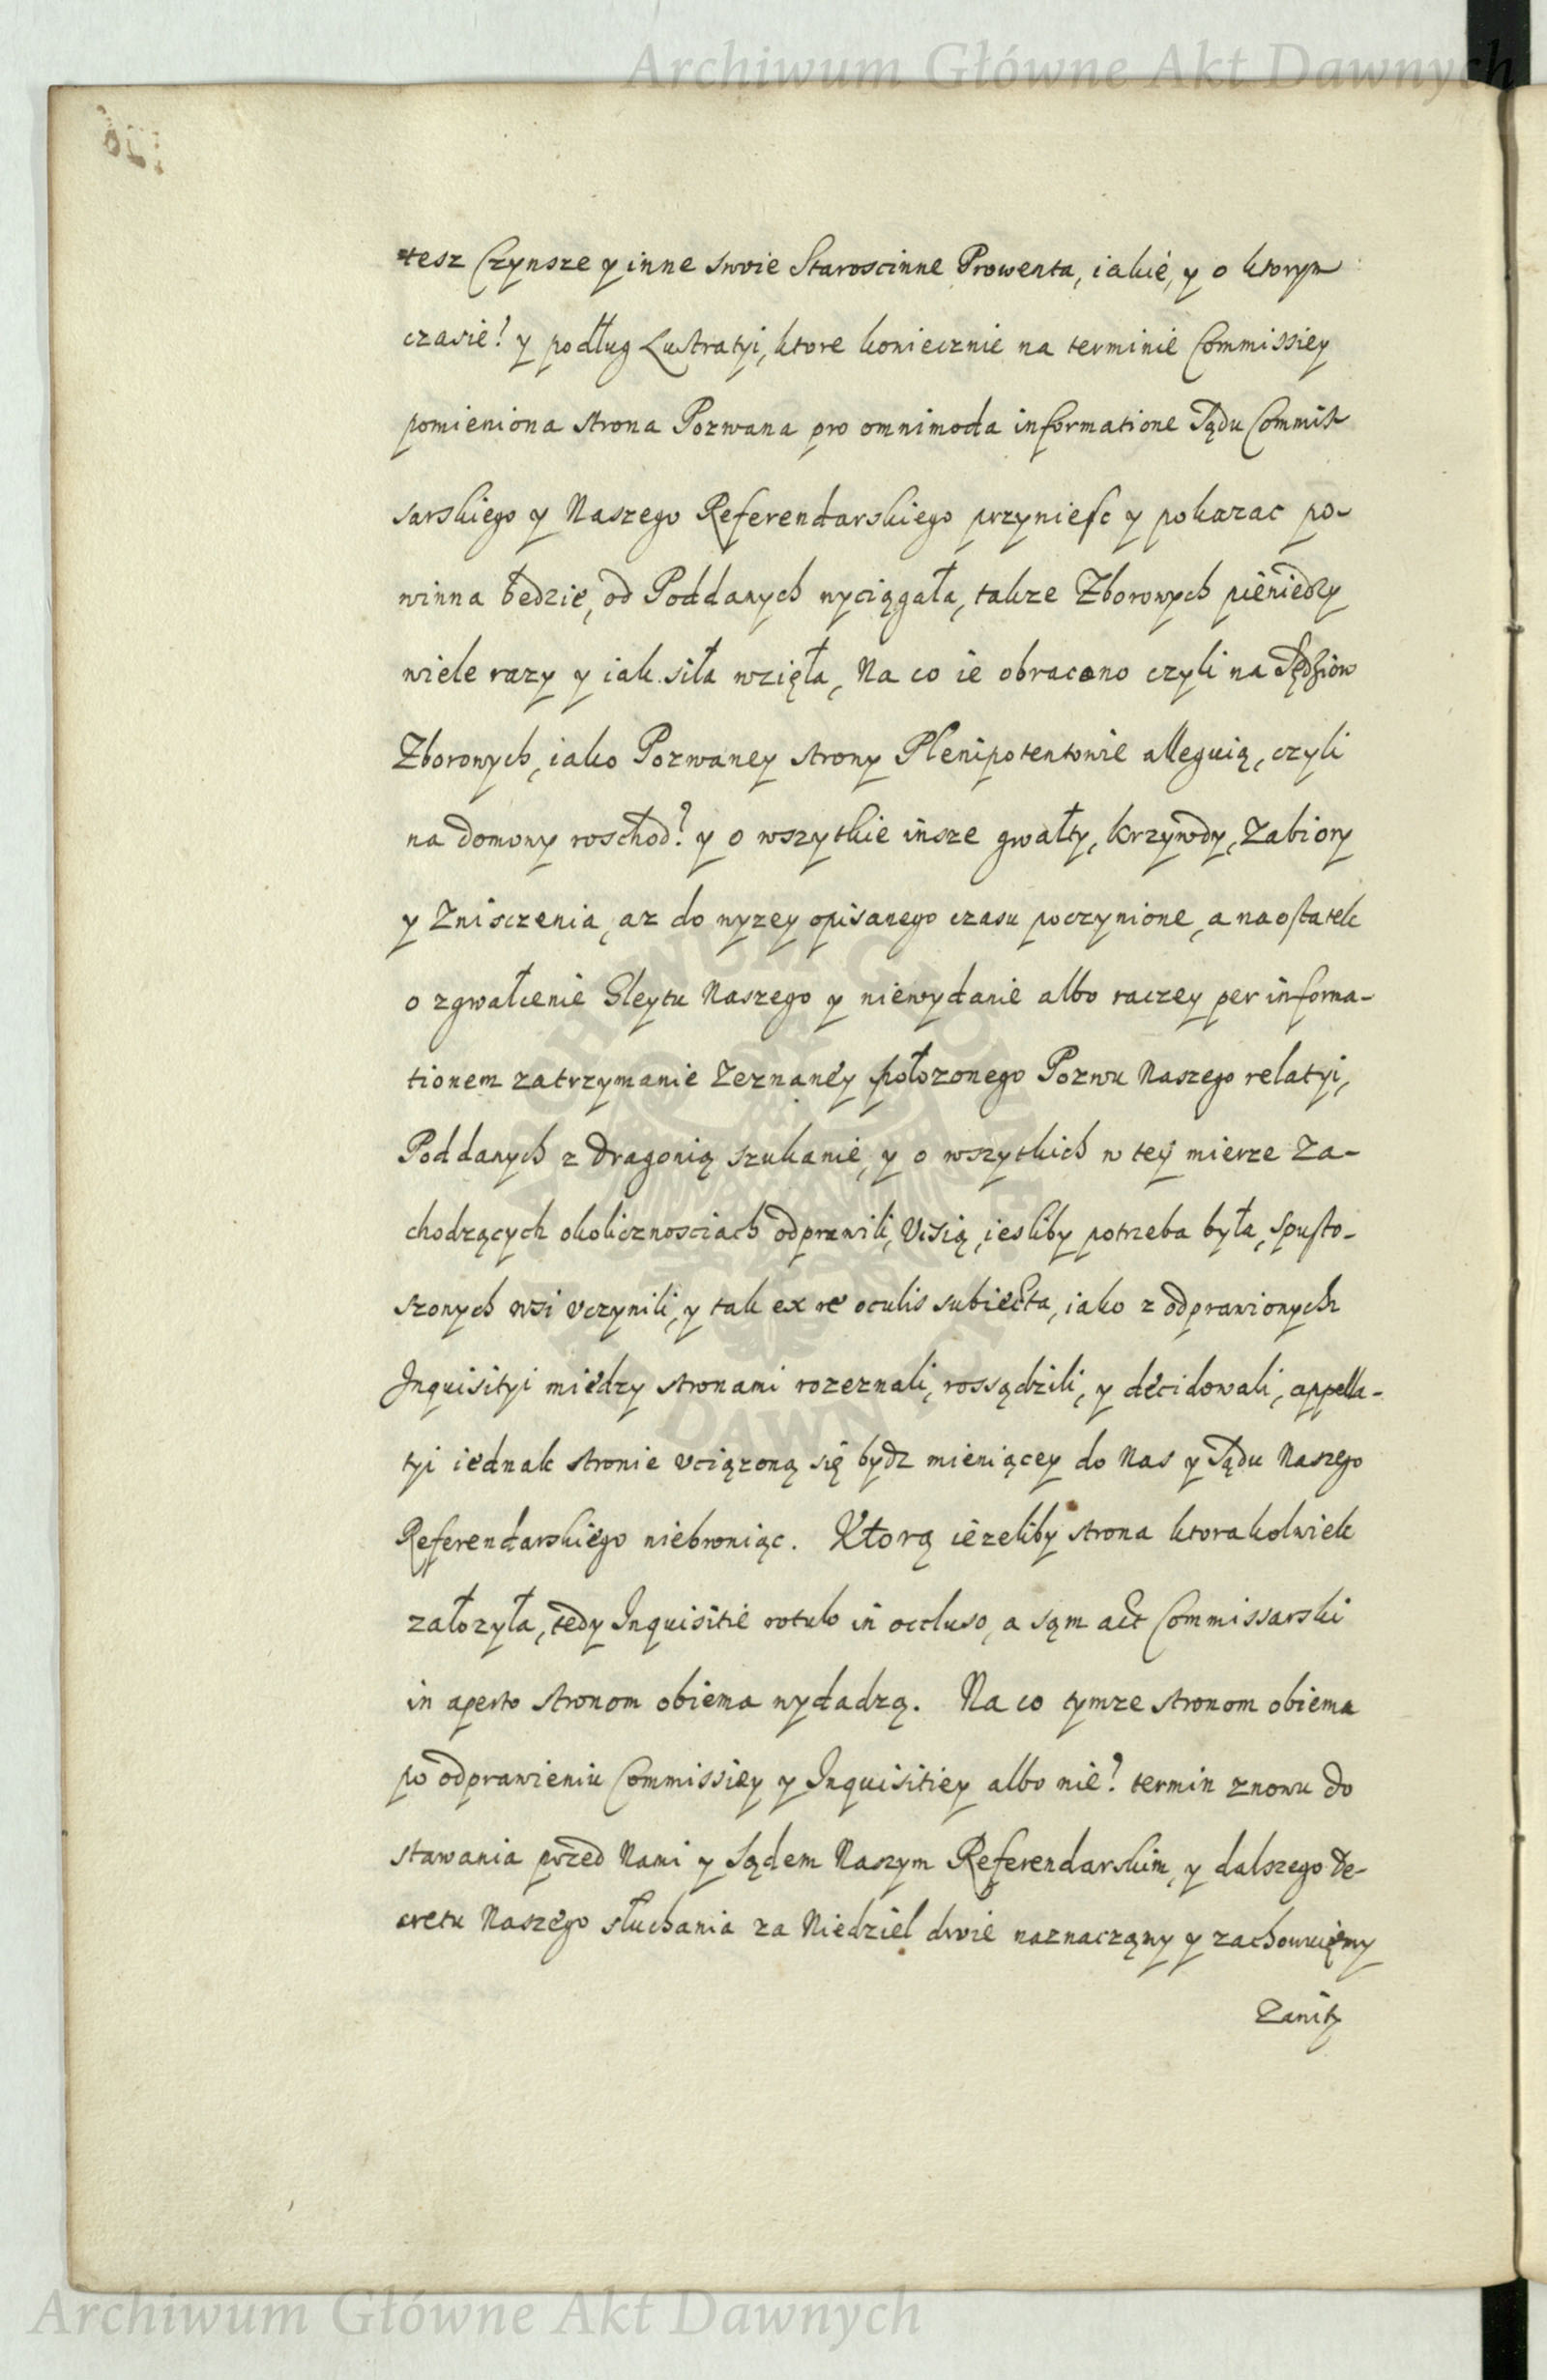 Archiwum Główne Akt Dawnych
tesz Czynsze y inne swoie Staroscinne Prowenta, iakie, y o ktorym
czasie? y podług Lustratyi, ktore koniecznie na terminie Commissiey
pomieniona strona Pozwana pro omnimoda informatione Sądu Commis
sarskiego y Naszego Referendarskiego przyniesc y pokazac po-
winna będzie, od Poddanych wyciągała, takze Zborowych pieniędzy
wiele razy y iak siła wzięła, Na co ie obracono czyli na Sędziow
Zborowych, iako Pozwaney strony Plenipotentowie alleguią, czyli
na domowy roschod? y o wszytkie insze gwałty, krzywdy, Zabiory
y Znisczenia, az do wyzey opisanego czasu poczynione, a na ostatek
o zgwałcenie Gleytu Naszego y niewydanie albo raczey per informa-
tionem zatrzymanie Zeznaney połozonego Pozwu Naszego relatyi,
Poddanych z Dragonią szukanie, y o wszytkich w tey mierze Za-
chodzących okolicznosciach odprawili, Visią, iesliby potrzeba była, spusto-
szonych wsi vczynili, y tak ex re oculis subiecta, iako z odprawionych
Inquisityi między stronami rozeznali, rossądzili, y decidowali, appella-
tyi iednak stronie vciązoną się bydz mieniącey do Nas y Sądu Naszego
Referendarskiego niebroniąc. Ktorą iezeliby strona ktorakolwiek
załozyła, tedy Inquisitie rotulo in occluso, a sąm act Commissarski
in aperto stronom obiema wydadzą. Na co tymze stronom obiema
po odprawieniu Commissiey y Inquisitiey albo nie? termin znowu do
stawania przed Nami y Sądem Naszym Referendarskim, y dalszego De-
cretu Naszego słuchania za Niedziel dwie naznacząmy y zachowuięmy
Zanity
Archiwum Główne Akt Dawnych